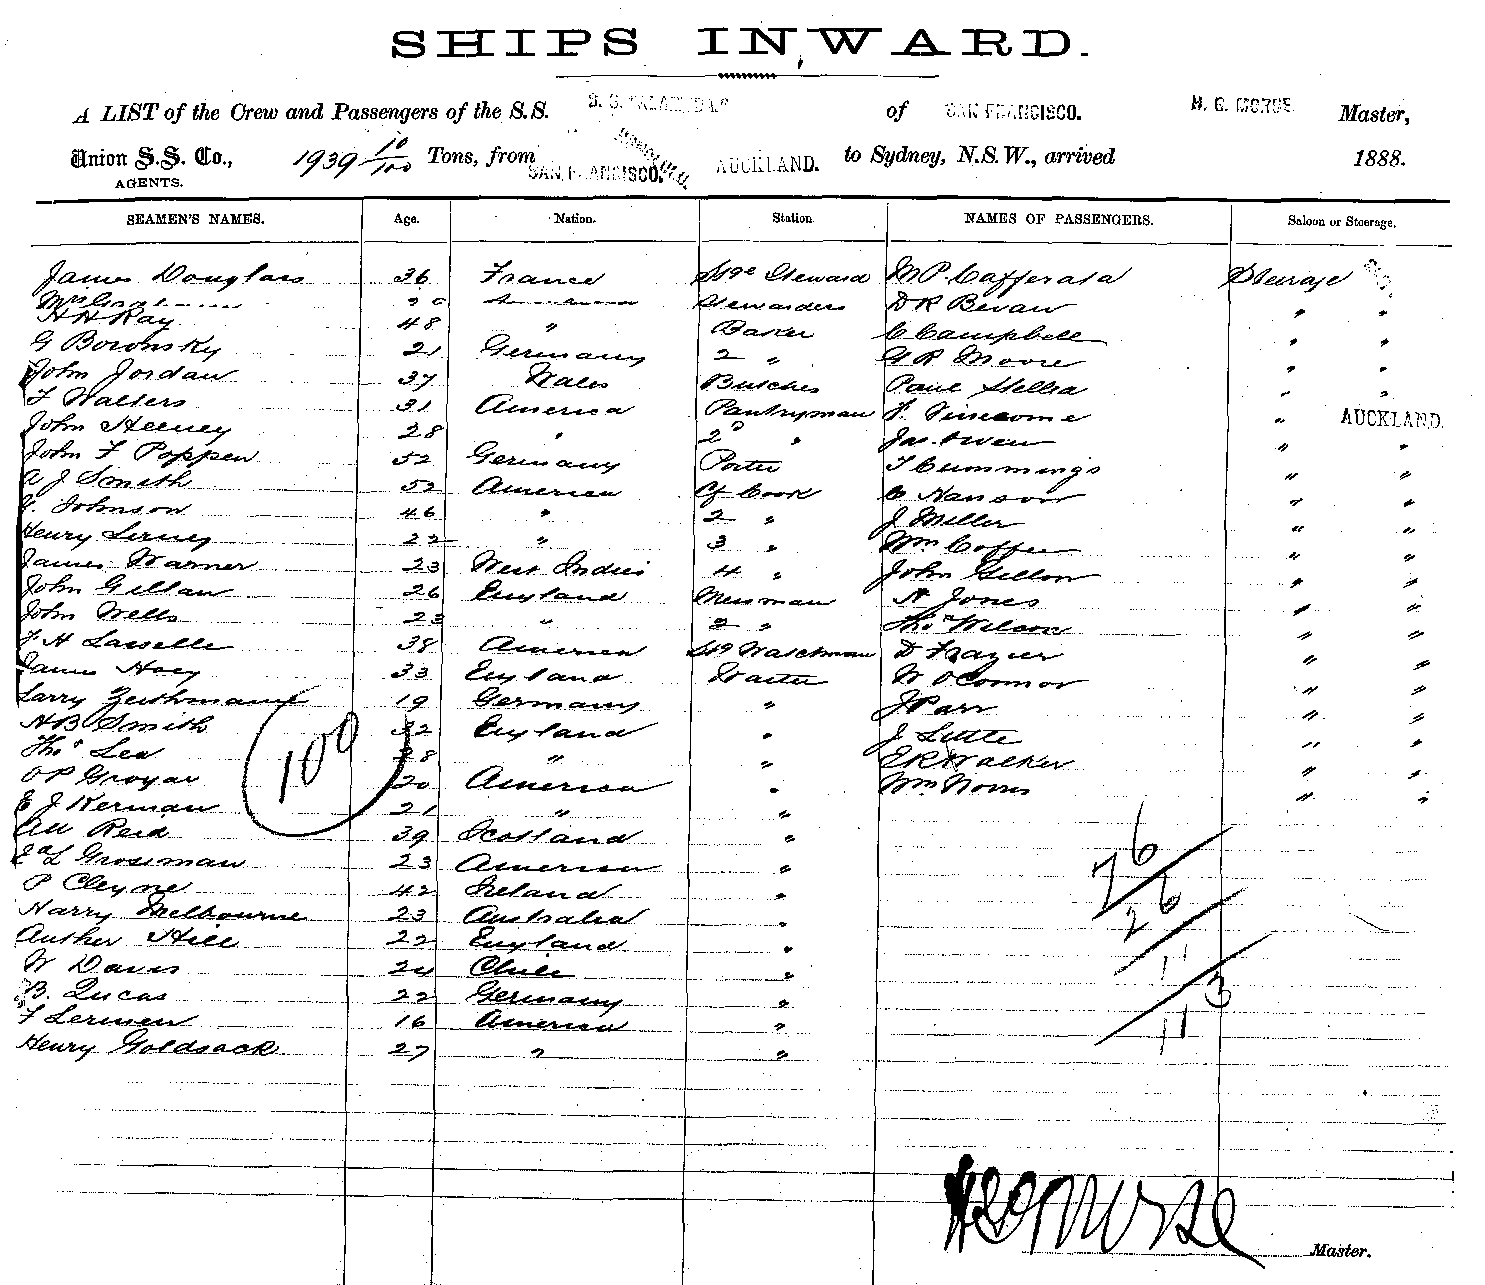 SHIPS INWARD.
A LIST of the Crew and Passengers of the S.S. of SAN FRANCISCO. H. G. MORSE Master,
Union S.S. Co., 1939 10/100 Tons, from SAN FRANCISCO. HONOLULU AUCKLAND. to Sydney, N.S.W., arrived 1888.
AGENTS.
SEAMEN'S NAMES. Age. Nation. Station NAMES OF PASSENGERS. Saloon or Steerage.
James Douglass 36 France Stge Steward M P. Cafferata Steerage
Mrs Stewardess D R Bevan " "
H H Ray 48 " Baker C Campbell " "
G Boronsky 21 Germany 2 " G R Moore " "
John Jordan 37 Wales Butcher Paul Stella " "
F Walters 31 America Pantryman F. Vinecome " AUCKLAND.
John Heeney 28 " 2d " Jas. Owen " "
John F Poppen 52 Germany Porter T Cummings " "
A J Smith 52 America Cf Cook C Hanson " "
Johnson 46 " 2 " J Miller " "
Henry 22 " 3 " Wm Coffee " "
James Warner 23 West Indies 4 " John Gillon " "
John Gillan 26 England Messman H Jones " "
John Wells 23 " 2 " Thos Wilson " "
F H Lasselle 38 America Stg Watchman D Frazier " "
James Hoey 33 England Waiter W O'Connor " "
Larry 19 Germany " J Parr " "
H B Smith 32 England " J Little " "
Thos Lea 28 " " E R Walker " "
O P Groyar 20 America " Wm Norris " "
E J Kerman 21 " "
AW Reid 39 Scotland "
Ed L Grossman 23 America "
P Cleyne 42 Ireland "
Harry Melbourne 23 Australia "
Auther Hill 22 England "
W Davis 24 Chili "
B. Lucas 22 Germany "
F Lermen 16 America "
Henry Goldsack 27 " "
100
76
26
11
3
11
H G Morse
Master.